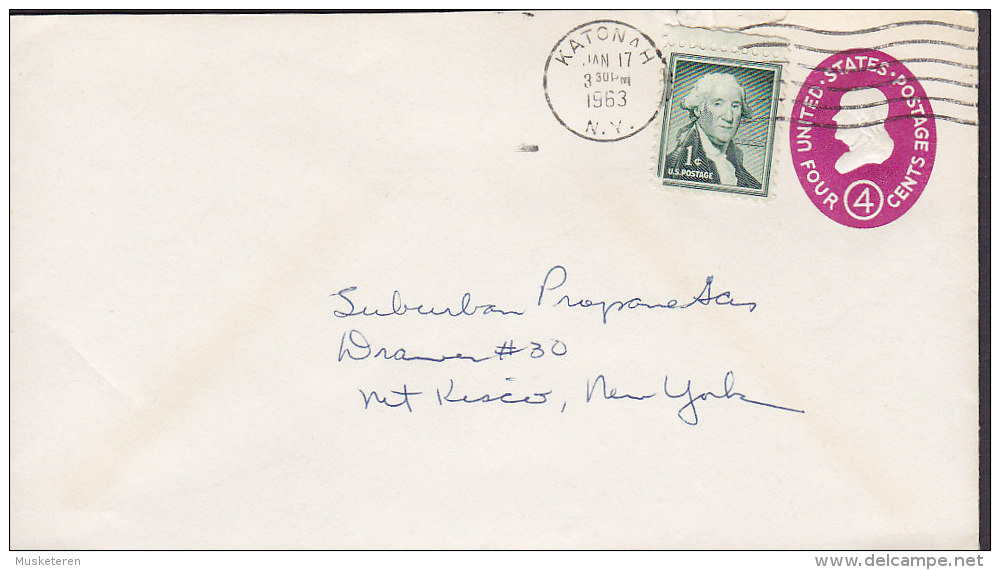 KATONAH
JAN 17
3 30PM
1963
N.Y.
1¢
U.S. POSTAGE
UNITED · STATES · POSTAGE
FOUR 4 CENTS
Suburban Propane Gas
Drawer #30
Mt Kisco, New York
Musketeren
delcampe.net